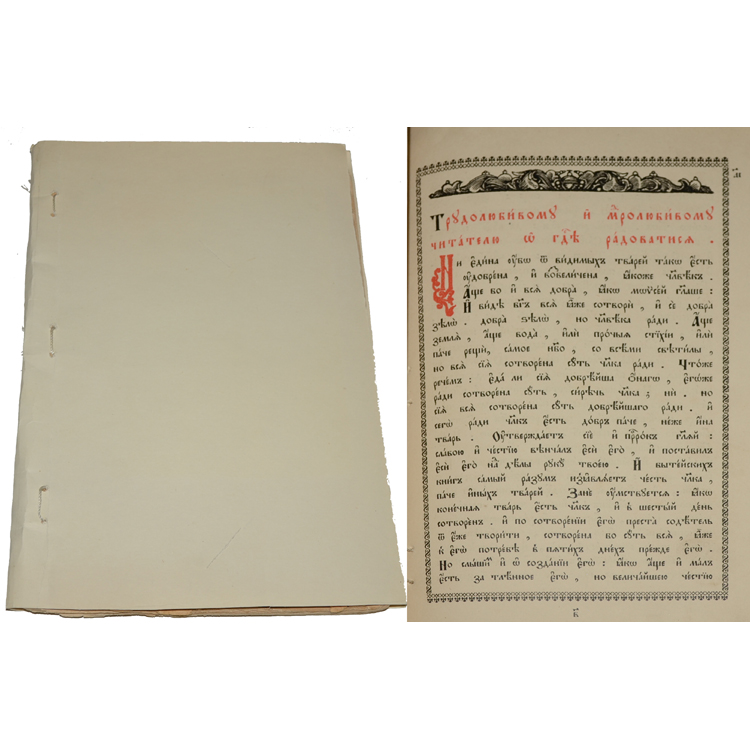 Трꙋдолюби́вому и҆ мт҃ролюби́вому
чита́телю ѡ҆ гдⷭ҇ѣ ра́доватисѧ .
Ни є҆ди́на ᲂу҆́бѡ ѿ ви́димыхъ тва́рей та́кѡ є҆́сть
ᲂу҆до́брена , и҆ возвели́чена , ꙗ҆́коже чл҃вѣ́къ .
А҆́ще бо и҆ всѧ̑ дѡбра̀ , ꙗ҆́кѡ мѡѷсе́й гл҃аше :
И҆ ви́дѣ бг҃ъ всѧ̑ ꙗ҆̀же сотворѝ , и҆ сѐ дѡбра̀
ѕѣлѡ̀ . дѡбра̀ ѕѣлѡ̀ , но чл҃вѣ́ка ра́ди . А҆́ще
землѧ̀ , а҆́ще вода̀ , и҆лѝ про́чыѧ стїхі́и , и҆лѝ
па́че рещѝ , са́мое не́бо , со всѣ́ми свѣти̑лы ,
но всѧ̑ сїѧ̑ сотворє́на сꙋ́ть чл҃ка ра́ди . Что́же
рече́мъ : є҆да́ ли сїѧ̑ добрѣ̑йша ѻ҆́нагѡ , є҆гѡ́же
ра́ди сотворє́на сꙋ́ть , си́рѣчь чл҃ка ; нѝ . но
сїѧ̑ всѧ̑ сотворє́на сꙋ́ть добрѣ́йшаго ра́ди . и҆
сегѡ̀ ра́ди чл҃къ є҆́сть до́бръ па́че , не́же и҆́на
тва́рь . Оу҆твержда́етъ сїѐ и҆ прⷪ҇ро́къ гл҃ѧй :
сла́вою и҆ че́стїю вѣнча́лъ є҆сѝ є҆го̀ , и҆ поста́вилъ
є҆сѝ є҆го̀ над̾ дѣ́лы рꙋкꙋ̀ твоє́ю . И҆ быте́йскихъ
кни́гъ са́мый ра́зꙋмъ и҆з̾ѧвлѧ́етъ че́сть чл҃ка ,
па́че и҆́ныхъ тва́рей . Занѐ ᲂу҆́мствꙋетсѧ : ꙗ҆́кѡ
коне́чнаѧ тва́рь є҆́сть чл҃къ , и҆ в̾ шесты́й де́нь
сотворе́нъ . и҆ по сотворе́нїи є҆гѡ̀ преста̀ содѣ́тель
ѿ є҆́же твори́ти , сотворє́на бо сꙋ́ть всѧ̑ , ꙗ҆̀же
к̾ є҆гѡ̀ потре́бѣ в̾ пѧти́хъ дне́хъ пре́жде є҆гѡ̀ .
Но слы́ши и҆ ѡ҆ созда́нїи є҆гѡ̀ : ꙗ҆́кѡ а҆́ще и҆ ма́лъ
є҆́сть за тлѣ́нное є҆гѡ̀ , но велича́йшею че́стїю